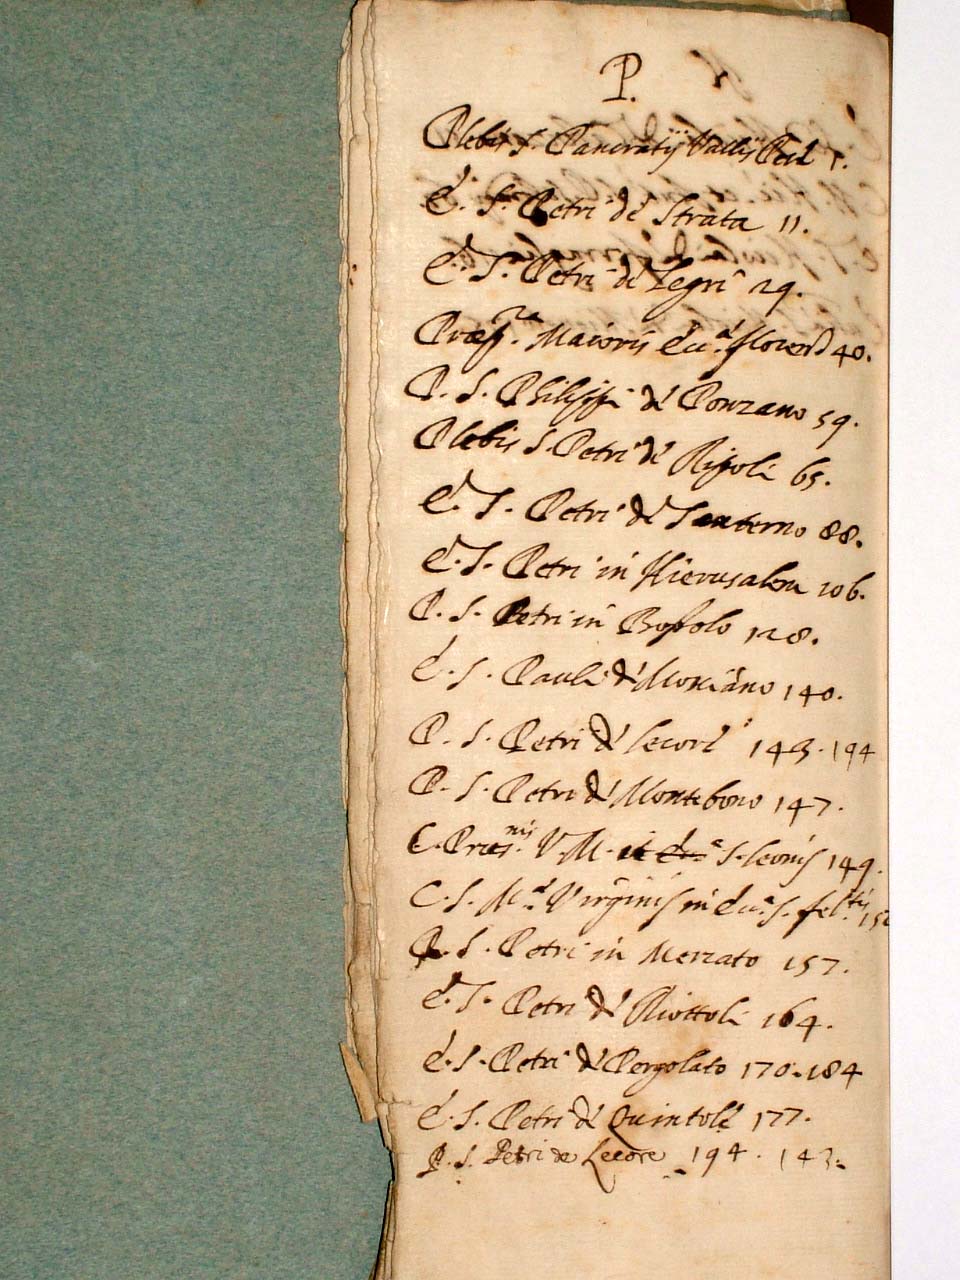 P.
Plebis S. Pancratij Vallis Pesĕ 1.
E. S.ti Petri de Strata 11.
E. S.ti Petri de Legri 29.
Præp.ræ Maioris Ecc.æ floren. 40.
P. S. Philippi de Ponzano 59.
Plebis S. Petri de Ripoli 65.
E. S. Petri de Santerno 88.
E. S. Petri in Hierusalem 106.
P. S. Petri in Bossolo 128.
E. S. Pauli de Moriano 140.
P. S. Petri de lecore 143. 194
P. S. Petri de Montebono 147.
C. V. M. S. leonis 149.
C. S. M.æ Virginis in S. fel.tis 15
P. S. Petri in Mercato 157.
E. S. Petri de Riottoli 164.
E. S. Petri de Pergolato 170. 184
E. S. Petri de Quintole 177.
P. S. Petri de Lecore 194. 143.